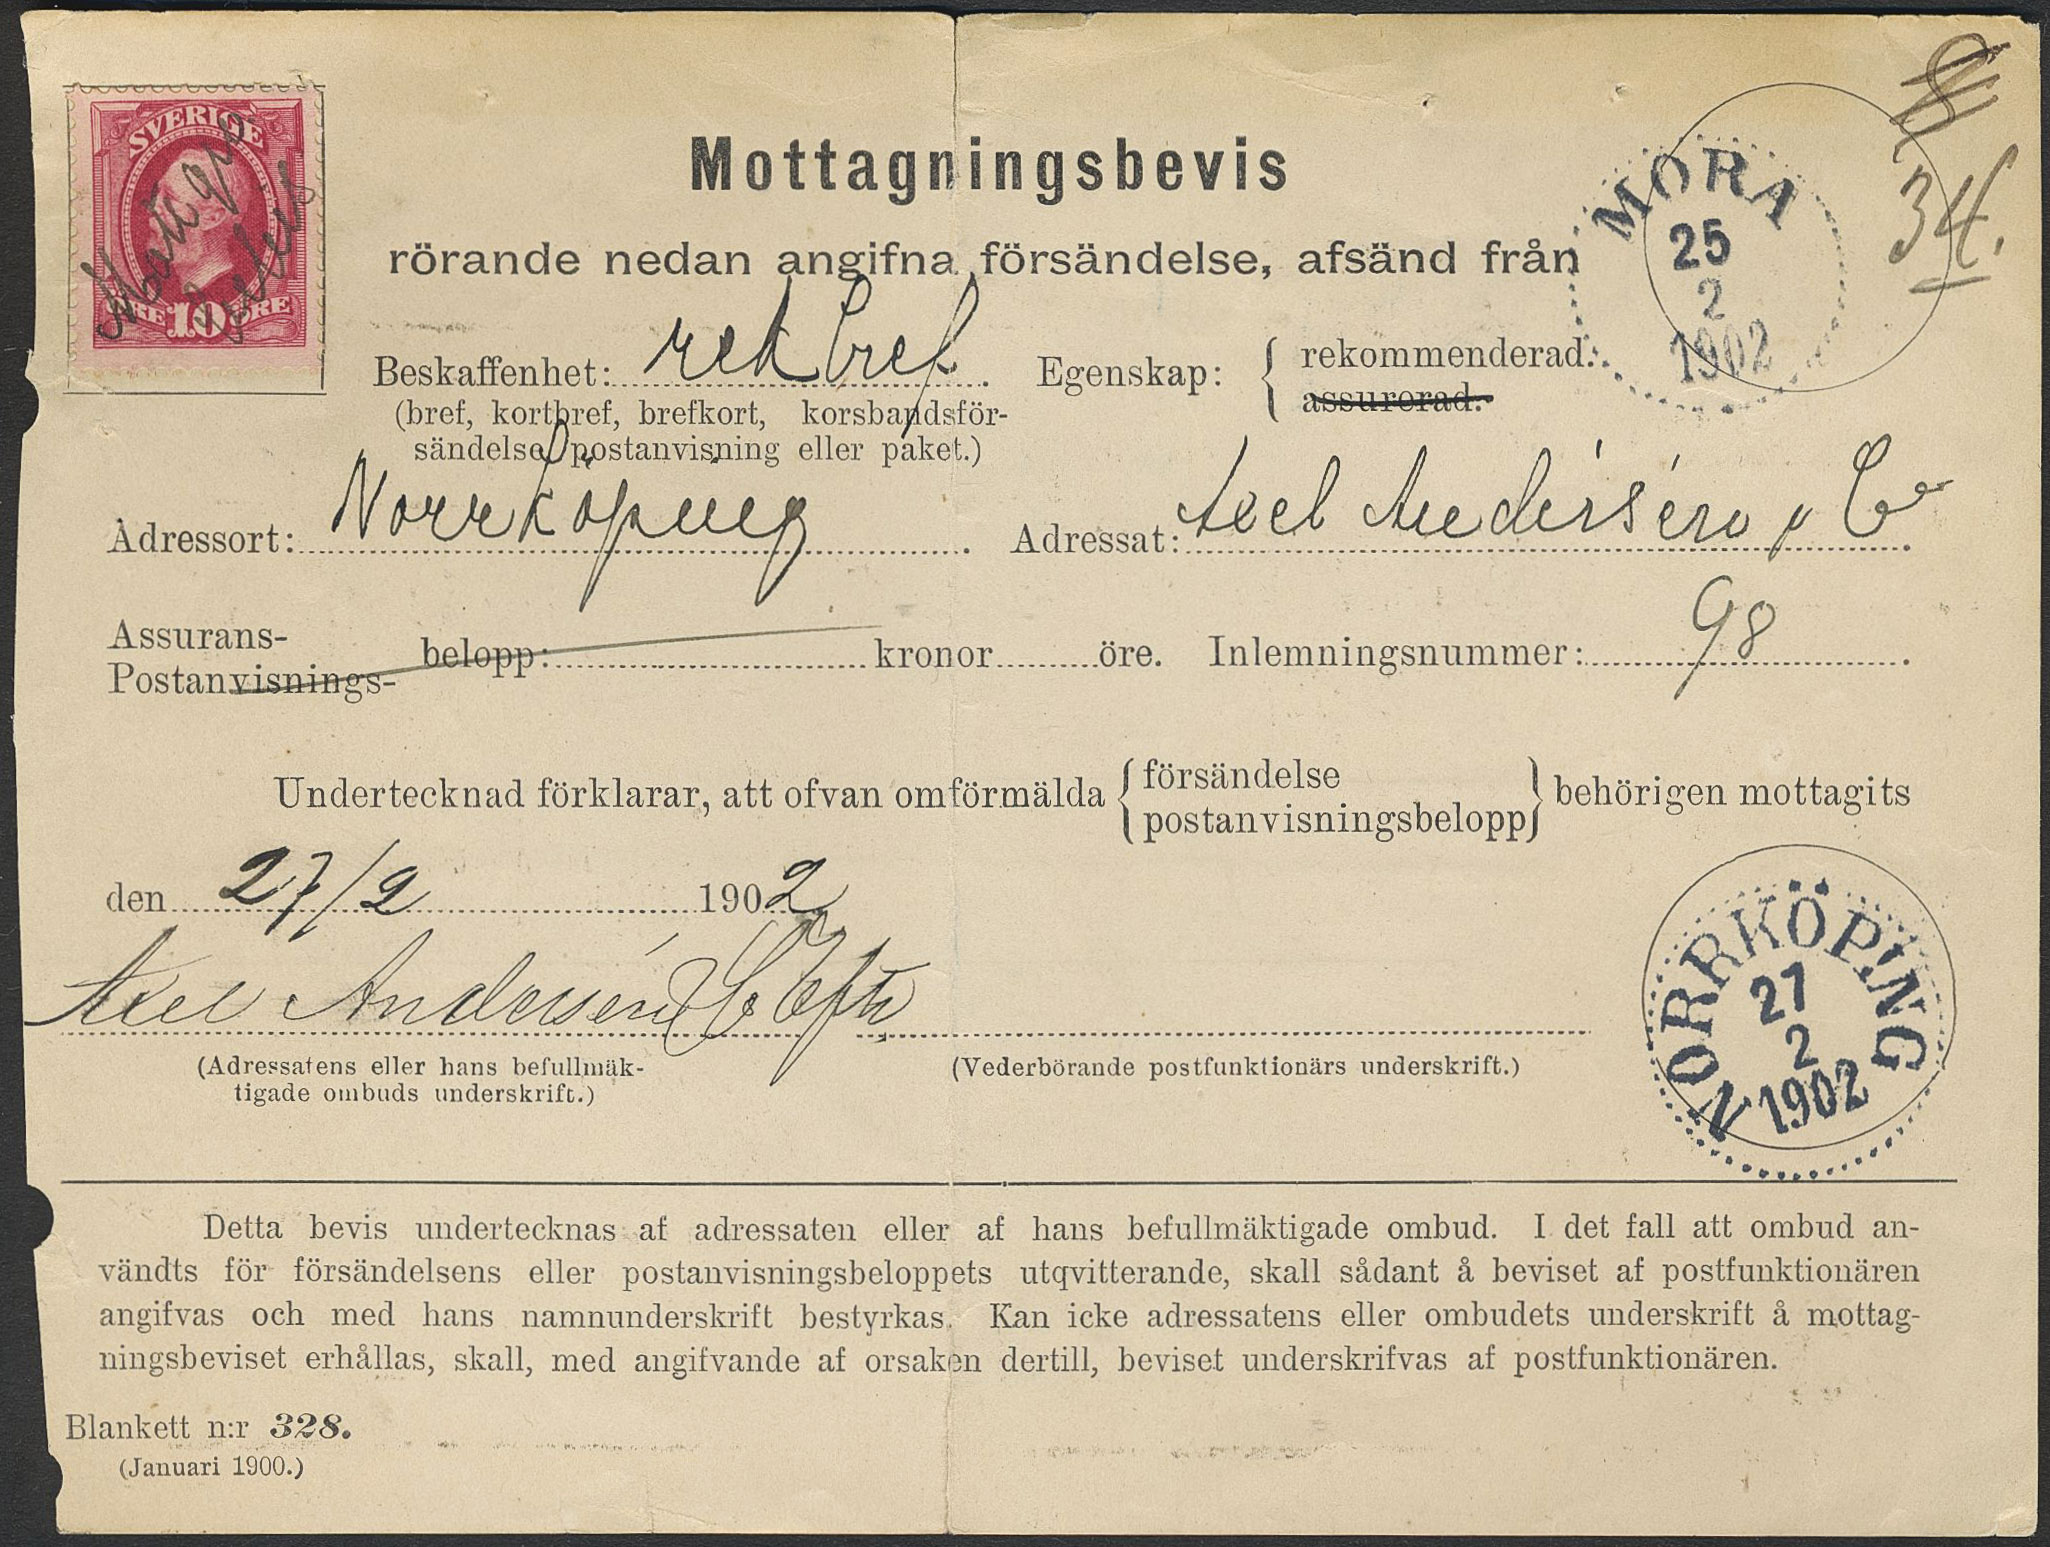 SVERIGE
ÖRE 10 ÖRE
Mottagningsbevis
rörande nedan angifna försändelse, afsänd från
MORA
25
2
1902
34.
Beskaffenhet: rek bref.
(bref, kortbref, brefkort, korsbandsför-
sändelse, postanvisning eller paket.)
Egenskap: { rekommenderad.
assurerad.
Adressort: Norrköping. Adressat: Axel Andersén & Co.
Assurans-
Postanvisnings-
belopp: kronor öre. Inlemningsnummer: 98.
Undertecknad förklarar, att ofvan omförmälda { försändelse
postanvisningsbelopp } behörigen mottagits
den 27/2 1902
Axel Andersén & Co Eftr
(Adressatens eller hans befullmäk-
tigade ombuds underskrift.)
(Vederbörande postfunktionärs underskrift.)
NORRKÖPING
27
2
1902
Detta bevis undertecknas af adressaten eller af hans befullmäktigade ombud. I det fall att ombud an-
vändts för försändelsens eller postanvisningsbeloppets utqvitterande, skall sådant å beviset af postfunktionären
angifvas och med hans namnunderskrift bestyrkas. Kan icke adressatens eller ombudets underskrift å mottag-
ningsbeviset erhållas, skall, med angifvande af orsaken dertill, beviset underskrifvas af postfunktionären.
Blankett n:r 328.
(Januari 1900.)